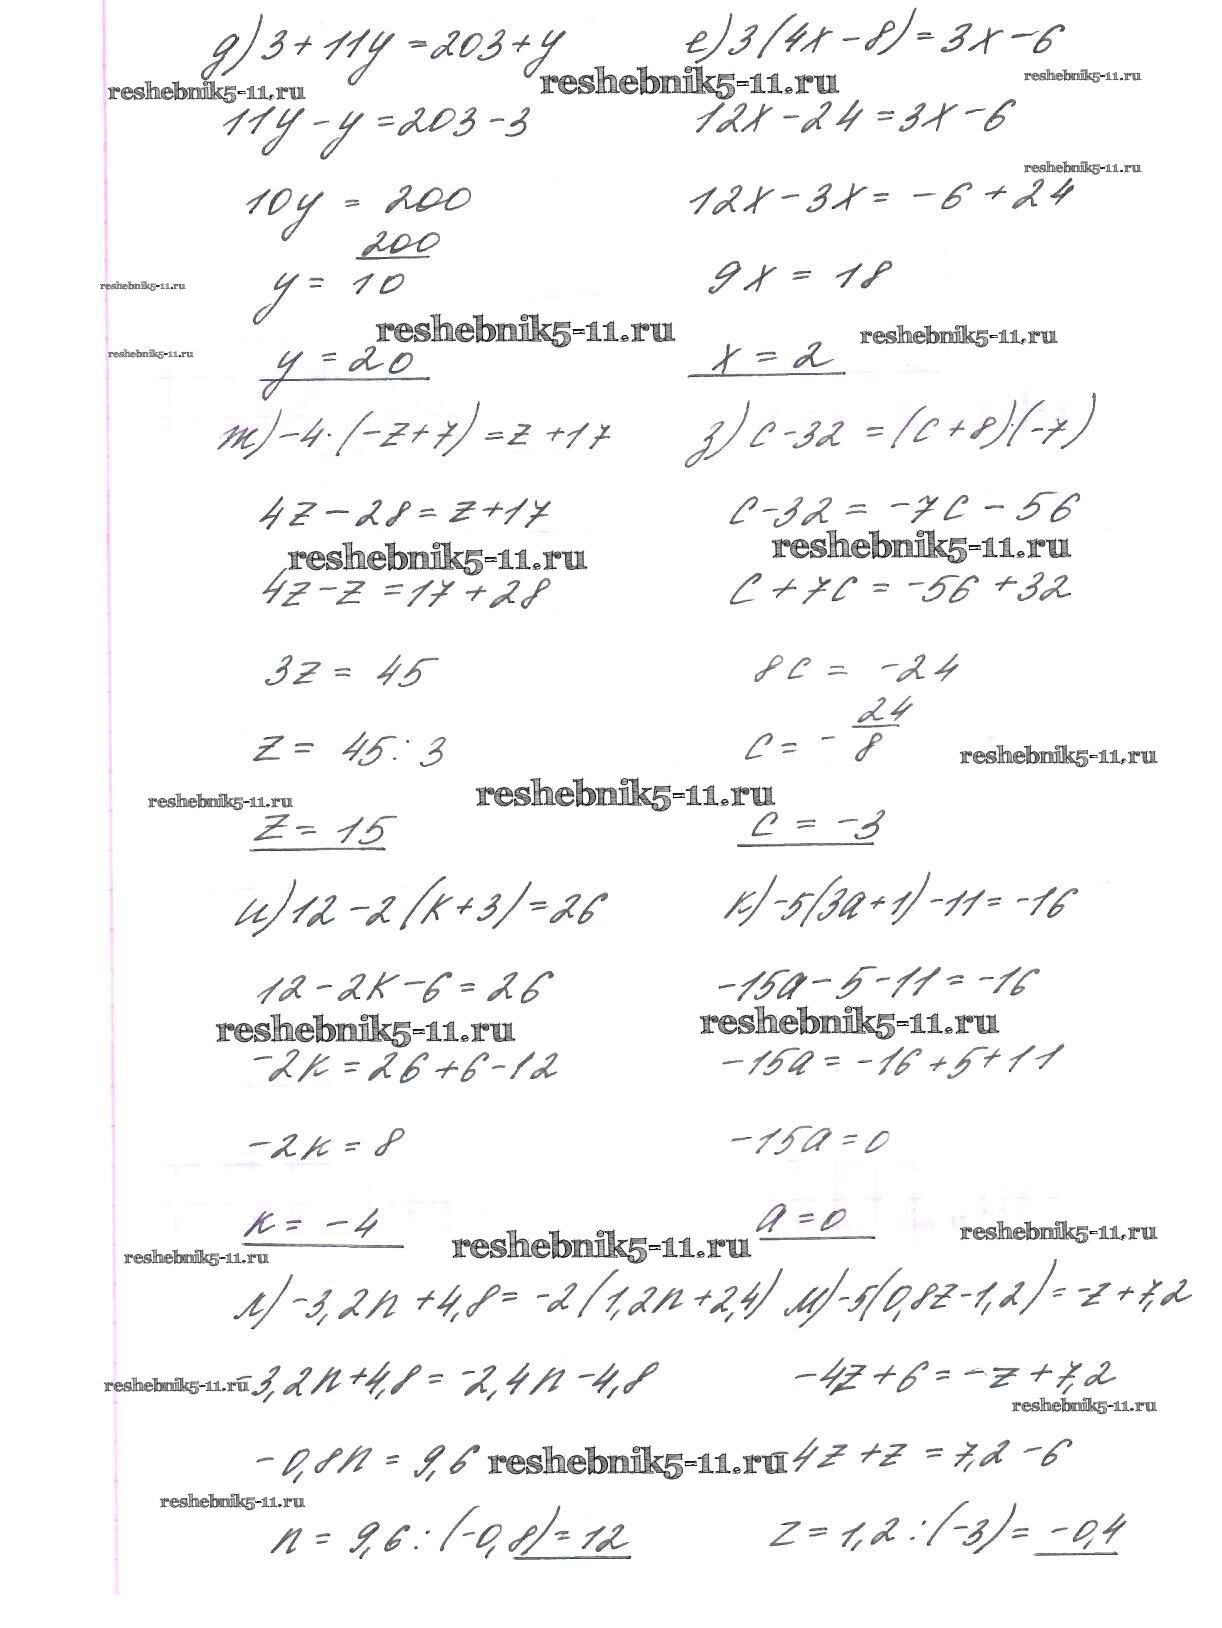 д) 3 + 11y = 203 + y
е) 3(4x - 8) = 3x - 6
reshebnik5-11.ru
reshebnik5-11.ru
reshebnik5-11.ru
11y - y = 203 - 3
12x - 24 = 3x - 6
reshebnik5-11.ru
10y = 200
12x - 3x = -6 + 24
y = 200/10
9x = 18
reshebnik5-11.ru
reshebnik5-11.ru
reshebnik5-11.ru
reshebnik5-11.ru
y = 20
x = 2
ж) -4·(-z+7) = z + 17
з) c - 32 = (c + 8)·(-7)
4z - 28 = z + 17
c - 32 = -7c - 56
reshebnik5-11.ru
reshebnik5-11.ru
4z - z = 17 + 28
c + 7c = -56 + 32
3z = 45
8c = -24
z = 45 : 3
c = - 24/8
reshebnik5-11.ru
reshebnik5-11.ru
reshebnik5-11.ru
z = 15
c = -3
и) 12 - 2(k + 3) = 26
к) -5(3a + 1) - 11 = -16
12 - 2k - 6 = 26
-15a - 5 - 11 = -16
reshebnik5-11.ru
reshebnik5-11.ru
-2k = 26 + 6 - 12
-15a = -16 + 5 + 11
-2k = 8
-15a = 0
k = -4
a = 0
reshebnik5-11.ru
reshebnik5-11.ru
reshebnik5-11.ru
л) -3,2n + 4,8 = -2(1,2n + 2,4)
м) -5(0,8z - 1,2) = -z + 7,2
reshebnik5-11.ru
-3,2n + 4,8 = -2,4n - 4,8
-4z + 6 = -z + 7,2
reshebnik5-11.ru
-0,8n = 9,6
reshebnik5-11.ru
-4z + z = 7,2 - 6
reshebnik5-11.ru
n = 9,6 : (-0,8) = 12
z = 1,2 : (-3) = -0,4